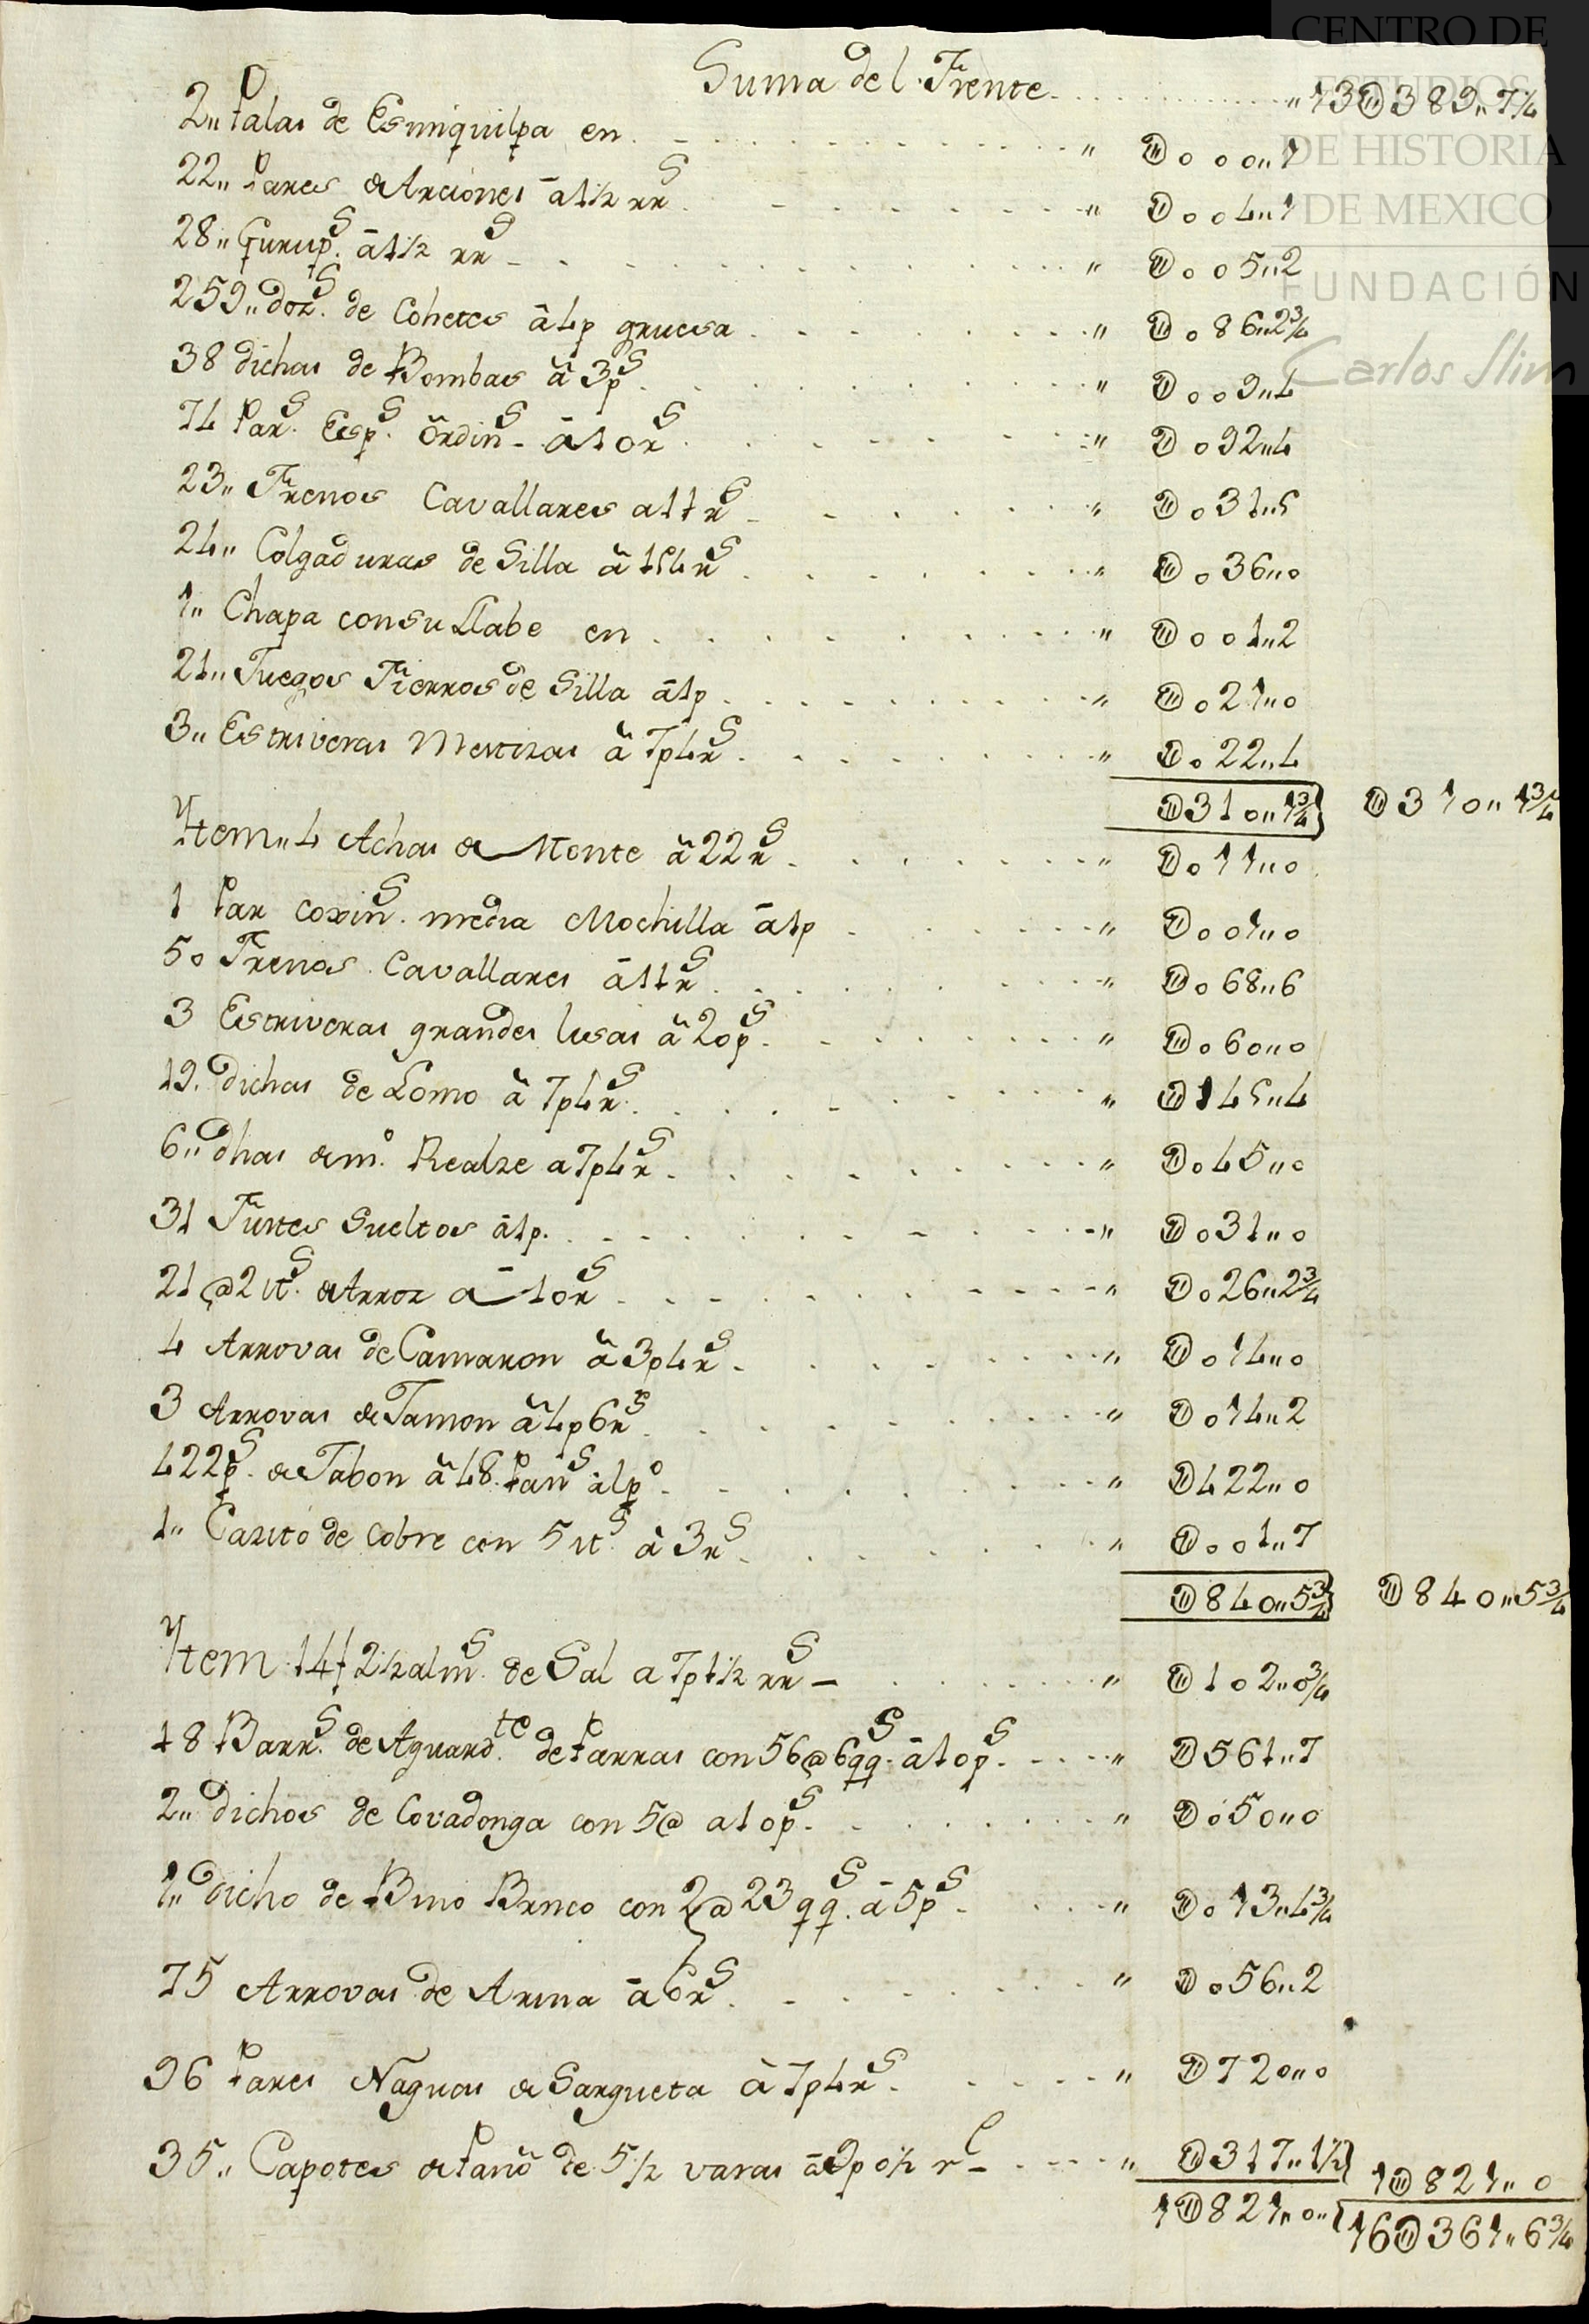 CENTRO DE
ESTUDIOS
DE HISTORIA
DE MEXICO
FUNDACIÓN
Carlos Slim
Suma del Frente " 13U389" 7¼
2" Palas de Esmiquilpa en " U000" 1
22" Pares de Arciones â 1½ rrS " U004" 1
28" Gurup.S â 1½ rrS " U005" 2
259" doz.S de Cohetes â 4p gruesa " U086" 2¾
38 dichas de Bombas â 3pS " U009" 4
74 Par.S Esp.S Ordin.S â 10rS " U092" 4
23" Frenos Cavallares a 11rS " U031" 5
24" Colgaduras de Silla â 1p4rS " U036" 0
1" Chapa con su Llabe en " U001" 2
21" Juegos Fierros de Silla â 1p " U021" 0
3" Estriveras Mestizas â 7p4rS " U022" 4
U310" 1¾ U310" 1¾
Ytem" 4 Achas de Monte â 22rS " U011" 0
1 Par coxin.S media Mochilla â 1p " U001" 0
50 Frenos Cavallares â 11rS " U068" 6
3 Estriveras grandes lisas â 20pS " U060" 0
19. dichas de Lomo â 7p4rS " U145" 4
6" dhas de m.o Realze a 7p4rS " U045" 0
31 Fustes Sueltos â 1p. " U031" 0
21@2 lt.S de Arroz a 10rS " U026" 2¾
4 Arrovas de Camaron â 3p4rS " U014" 0
3 Arrovas de Jamon â 4p6rS " U014" 2
422pS de Jabon â 48 panS al po " U422" 0
1" Cazito de Cobre con 5 ltS â 3rS " U001" 7
U840" 5¾ U840" 5¾
Ytem 14f 2½ alm.S de Sal a 7p1½ rrS " U102" 0¾
18 Barr.S de Aguard.te de Parras con 56@6qqS â 10pS " U561" 7
2" dichos de Covadonga con 5@ a 10pS " U050" 0
1" dicho de Bino Banco con 2@23qqS â 5pS " U013" 4¾
75 Arrovas de Arina â 6rS " U056" 2
96 Pares Naguas de Sargueta â 7p4rS " U720" 0
35" Capotes de Paño de 5½ varas â 9p0½ rl " U317" 1½
1U821" 0 1U821" 0
16U361" 6¾